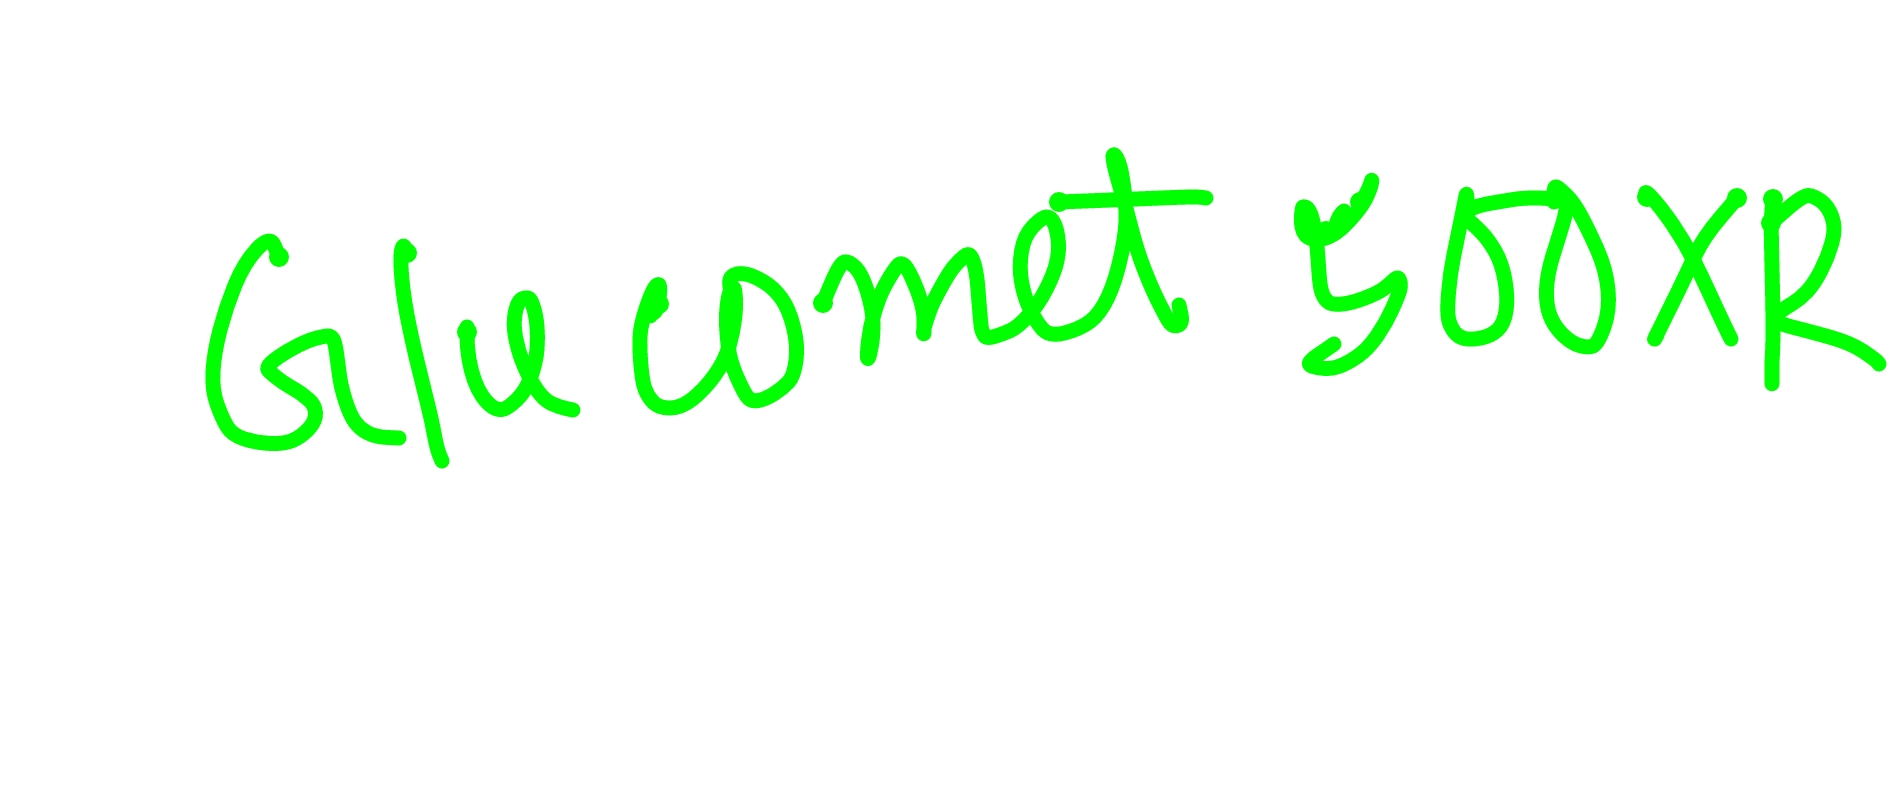 Glucomet 500XR